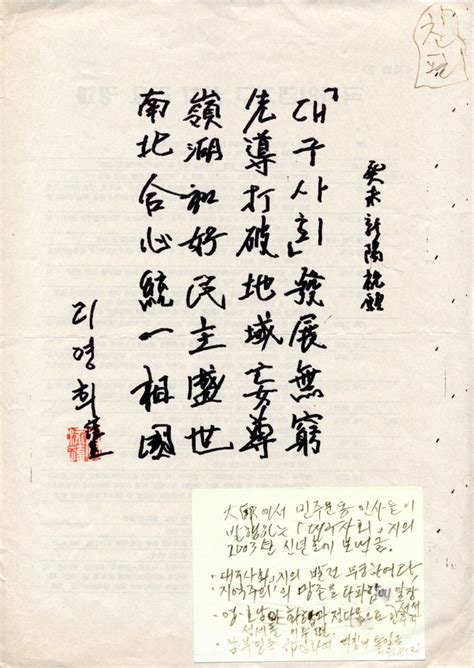 친필
癸未新陽祝
「대구사회」發展無窮
先導打破地域妄尊
嶺湖和好民主盛世
南北合心統一祖國
리영희
大邱에서 민주운동 인사들이
발행하는 「대구사회」지의
2003년 신년호에 보낸 글.
· 대구사회」지의 발전 무궁하여라,
지역주의의 망존을 타파함에 앞장
· 영·호남의 화합과 정다움으로
성세를 이루면
· 남북민중 통일을